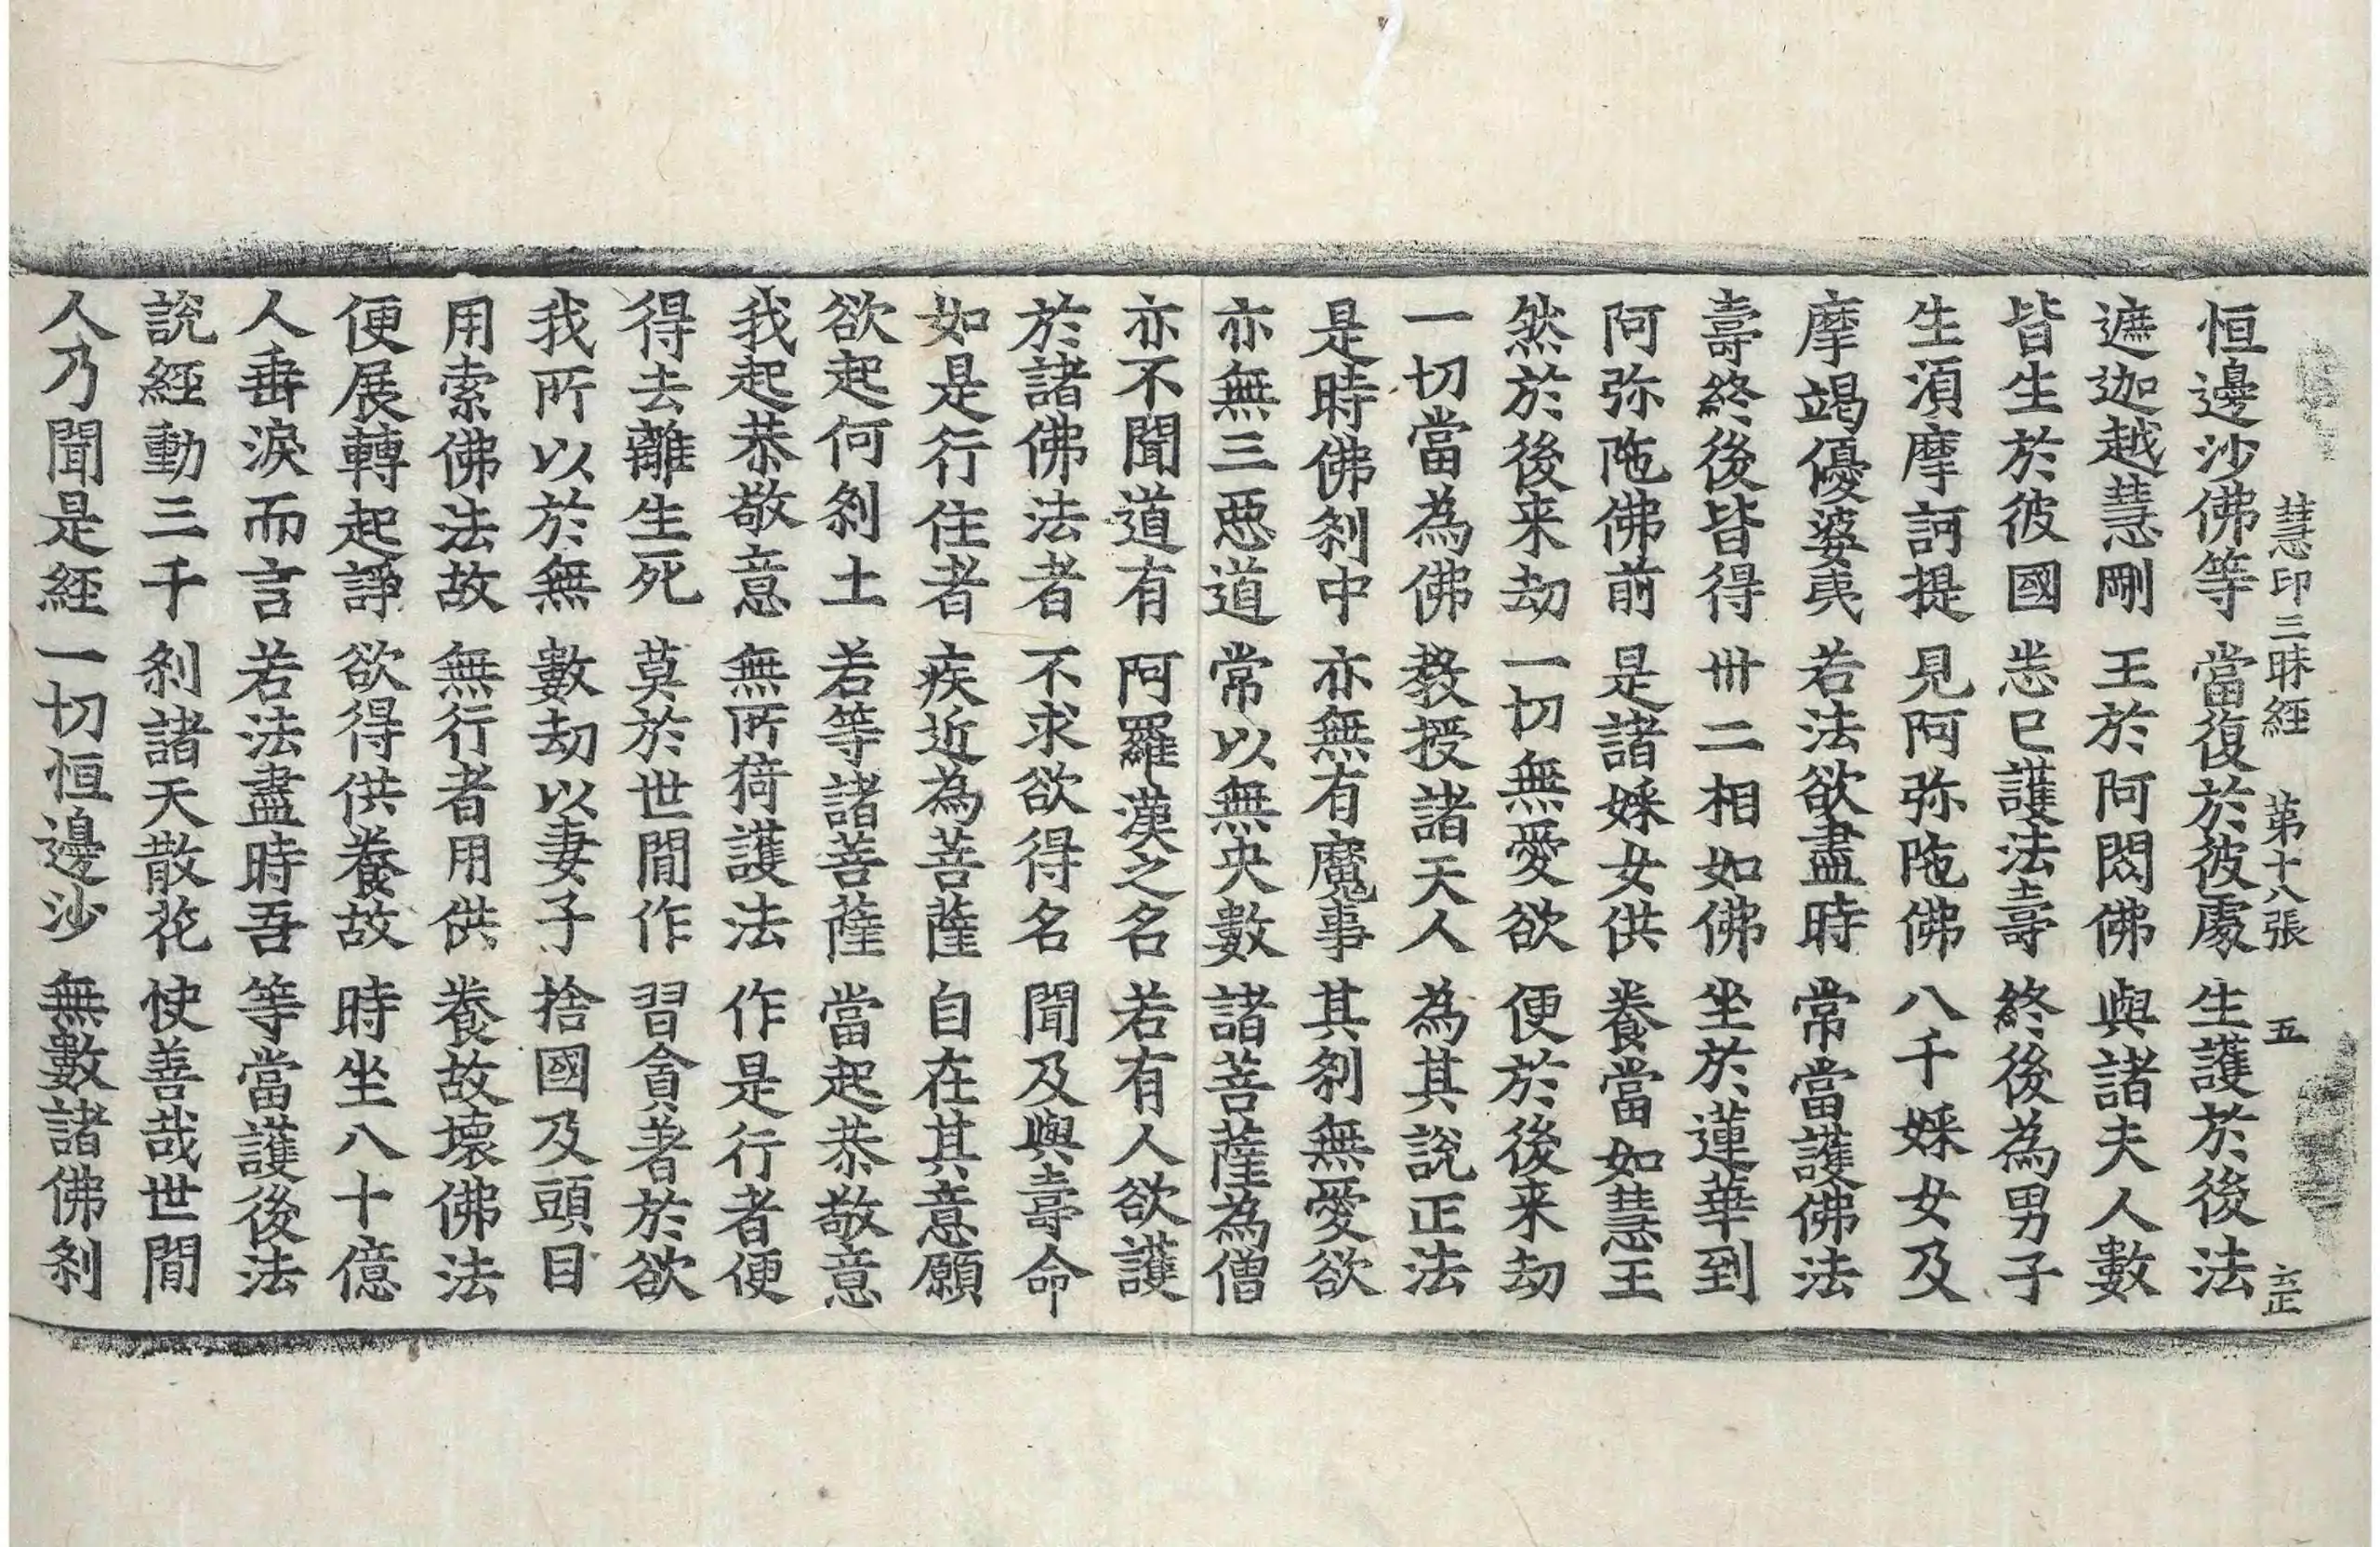 慧印三昧經 第十八張 五
恒邊沙佛等 當復於彼處 生護於後法
遮迦越慧剛 王於阿閦佛 與諸夫人數
皆生於彼國 悉已護法壽 終後為男子
生湏摩訶提 見阿弥陁佛 八千婇女及
摩竭優婆夷 若法欲盡時 常當護佛法
壽終後皆得 丗二相如佛 坐於蓮華到
阿弥陁佛前 是諸婇女供 養當如慧王
然於後来劫 一切無愛欲 便於後来劫
一切當為佛 教授諸天人 為其說正法
是時佛刹中 亦無有魔事 其刹無愛欲
亦無三惡道 常以無央數 諸菩薩為僧
亦不聞道有 阿羅漢之名 若有人欲護
於諸佛法者 不求欲得名 聞及與壽命
如是行住者 疾近為菩薩 自在其意願
欲起何刹土 若等諸菩薩 當起恭敬意
我起恭敬意 無所猗護法 作是行者便
得去離生死 莫於世間作 習貪著於欲
我所以於無 數劫以妻子 捨國及頭目
用索佛法故 無行者用供 養故壞佛法
便展轉起諍 欲得供養故 時坐八十億
人垂淚而言 若法盡時吾 等當護後法
說經動三千 刹諸天散花 快善哉世間
人乃聞是經 一切恒邊沙 無數諸佛刹